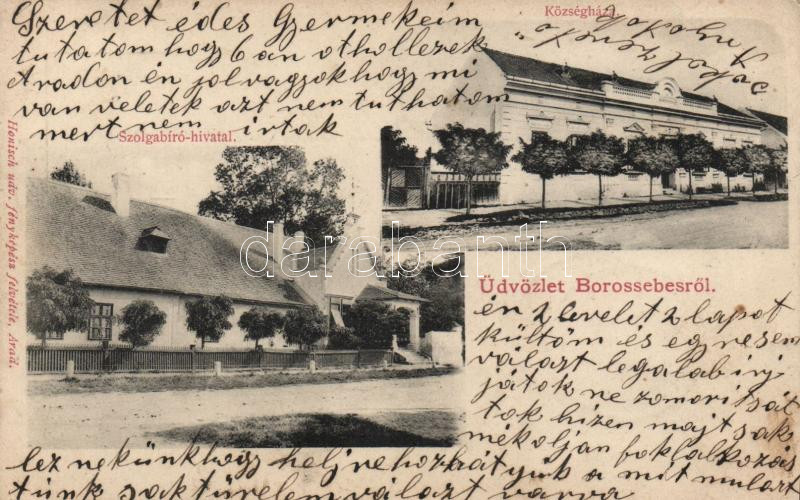 Szeretet édes Gyermekeim
tutatom hogy 6 án othollezek
Aradon én jol vagyok hogy mi
van veletek azt nem tuthatom
mert nem irtak
Községháza.
Szolgabíró-hivatal.
Honisch udv. fényképész felvétele, Arad.
darabanth
Üdvözlet Borossebesről.
én 2 levelet 2 lapot
kültöm és egyresem
válazt legalab irj
játok ne zomoritsát
tok hizen majt sak
mékoljan foklalkozás
lez nekünk hogy heljre hozhátyuk a mit mulasz
tunk sak türelem válazt varva